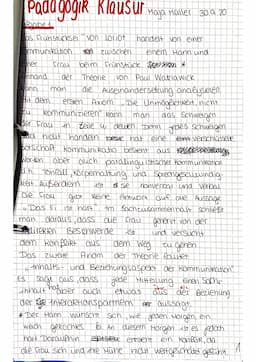 Pädagogik Klausur Maja Haller 30.9.20
Aufgabe 1
Das Frühstücksei von Loriot handelt von einer
Kommunikation zwischen einem Mann und
einer Frau beim Frühstück *
Anhand der Theorie von Paul Watzlawick
kann man die Auseinandersetzung analysieren
Mit dem ersten Axiom „Die Unmöglichkeit, nicht
zu kommunizieren" kann man das Schweigen
der Frau in Zeile
und nicht handeln hat eine
Botschaft Kommunikation besteht aus
Worten aber auch paralinguistischer Kommunikation
d.h. Tonfall, Körperhaltung und Sprachgeschwindig
keit. Außerdem ist diese nonverbal und verbal
Die Frau gibt keine Antwort auf die Aussage
"Das Ei ist hart". Im Sachzusammenhalt schließt
man daraus, dass die Frau genervt von der
Beschwerde ist und versucht
dem Konflikt aus dem Weg zu gehen.
Das zweite Axiom der Theorie lautet
„Inhalts- und Beziehungsaspekt der Kommunikation".
Es sagt aus, dass jede Mitteilung einen Sach-
inhalt, aber auch etwas aus der Beziehung
der Interaktionspartnern aussagt.
* Der Mann wünscht sich, wie jeden Morgen ein
weich gekochtes Ei. An diesem Morgen ist es jedoch
hart. Daraufhin entsteht ein Konflikt, da
die Frau sich und ihre Mühe nicht wertgeschätzt fühlt. 1